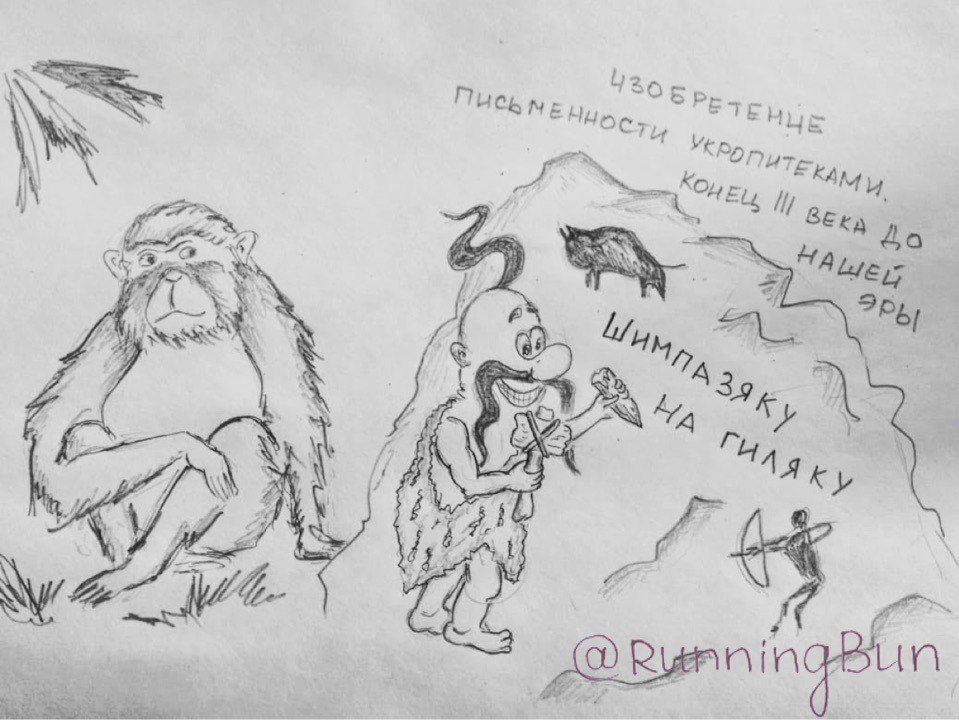 ИЗОБРЕТЕНИЕ
ПИСЬМЕННОСТИ УКРОПИТЕКАМИ.
КОНЕЦ III ВЕКА ДО
НАШЕЙ
ЭРЫ
ШИМПАЗЯКУ
НА ГИЛЯКУ
@RunningBun